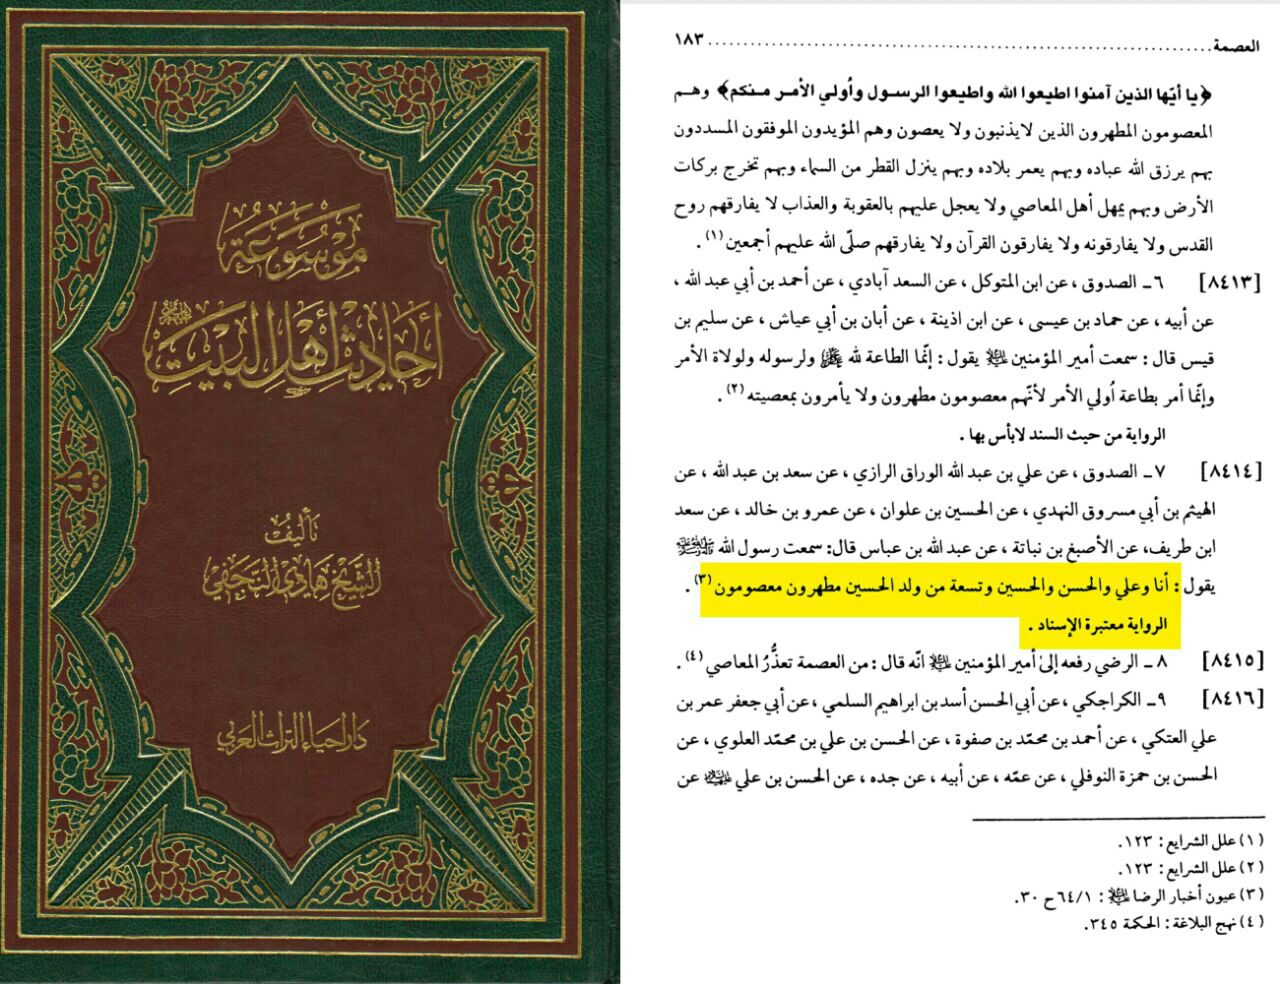 موسوعة
أحاديث أهل البيت
تأليف
الشيخ هادي النجفي
دار احياء التراث العربي
العصمة ........ ١٨٣
﴿يا أيّها الذين آمنوا اطيعوا الله واطيعوا الرسول وأولي الأمر منكم﴾ وهم
المعصومون المطهرون الذين لايذنبون ولا يعصون وهم المؤيدون الموفقون المسددون
بهم يرزق الله عباده وبهم يعمر بلاده وبهم ينزل القطر من السماء وبهم تخرج بركات
الأرض وبهم يمهل أهل المعاصي ولا يعجل عليهم بالعقوبة والعذاب لا يفارقهم روح
القدس ولا يفارقونه ولا يفارقون القرآن ولا يفارقهم صلّى الله عليهم أجمعين (١) .
[٨٤١٣] ٦ ـ الصدوق ، عن ابن المتوكل ، عن السعد آبادي ، عن أحمد بن أبي عبد الله ،
عن أبيه ، عن حماد بن عيسى ، عن ابن اذينة ، عن أبان بن أبي عياش ، عن سليم بن
قيس قال : سمعت أمير المؤمنين عليه السلام يقول : إنّما الطاعة لله عز وجل ولرسوله ولولاة الأمر
وإنّما أمر بطاعة اُولي الأمر لأنّهم معصومون مطهرون ولا يأمرون بمعصيته (٢) .
الرواية من حيث السند لابأس بها .
[٨٤١٤] ٧ ـ الصدوق ، عن علي بن عبد الله الوراق الرازي ، عن سعد بن عبد الله ، عن
الهيثم بن أبي مسروق النهدي ، عن الحسين بن علوان ، عن عمرو بن خالد ، عن سعد
ابن طريف ، عن الأصبغ بن نباتة ، عن عبد الله بن عباس قال : سمعت رسول الله صلى الله عليه وآله وسلم
يقول : أنا وعلي والحسن والحسين وتسعة من ولد الحسين مطهرون معصومون (٣) .
الرواية معتبرة الإسناد .
[٨٤١٥] ٨ ـ الرضي رفعه إلى أمير المؤمنين عليه السلام انّه قال : من العصمة تعذُّرُ المعاصي (٤) .
[٨٤١٦] ٩ ـ الكراجكي ، عن أبي الحسن أسد بن ابراهيم السلمي ، عن أبي جعفر عمر بن
علي العتكي ، عن أحمد بن محمّد بن صفوة ، عن الحسن بن علي بن محمّد العلوي ، عن
الحسن بن حمزة النوفلي ، عن عمّه ، عن أبيه ، عن جده ، عن الحسن بن علي عليهما السلام عن
(١) علل الشرايع : ١٢٣.
(٢) علل الشرايع : ١٢٣.
(٣) عيون أخبار الرضا عليه السلام : ٦٤/١ ح ٣٠.
(٤) نهج البلاغة : الحكمة ٣٤٥.